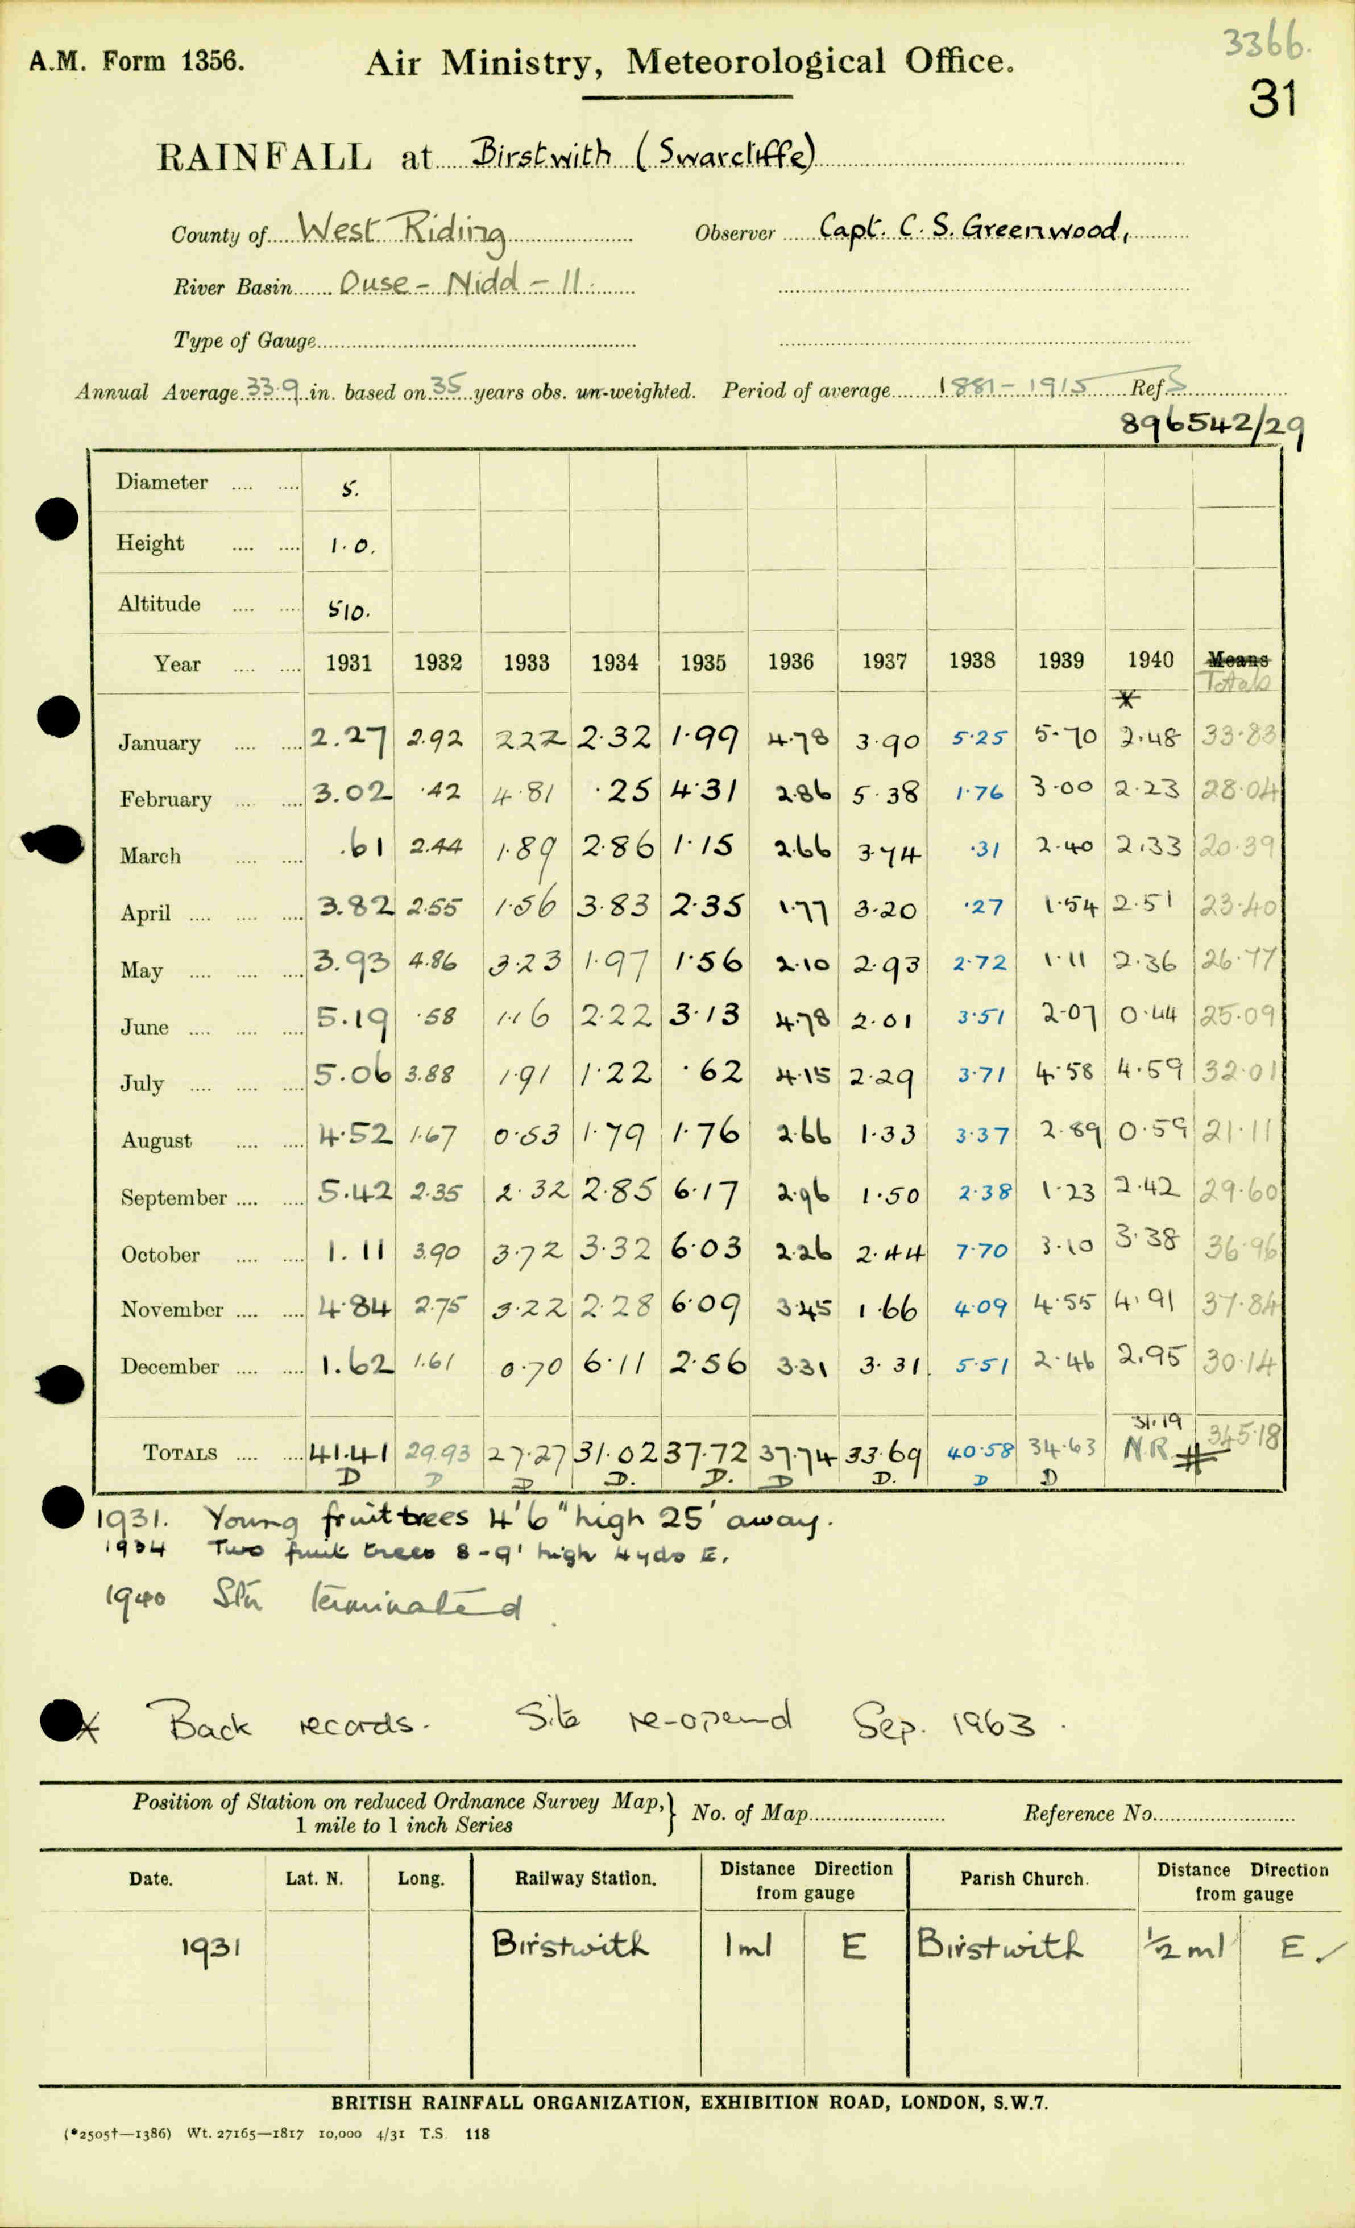 3366.
A.M. Form 1356. Air Ministry, Meteorological Office.
31
RAINFALL at Birstwith (Swarcliffe)
County of West Riding Observer Capt. C. S. Greenwood,
River Basin Ouse - Nidd - 11.
Type of Gauge
Annual Average 33.9 in. based on 35 years obs. un-weighted. Period of average 1881-1915 Ref. S
896542/29
Diameter 5.
Height 1.0.
Altitude 510.
Year 1931 1932 1933 1934 1935 1936 1937 1938 1939 1940 Means
* Totals
January 2.27 2.92 2.22 2.32 1.99 4.78 3.90 5.25 5.70 2.48 33.83
February 3.02 .42 4.81 .25 4.31 2.86 5.38 1.76 3.00 2.23 28.04
March .61 2.44 1.89 2.86 1.15 2.66 3.74 .31 2.40 2.33 20.39
April 3.82 2.55 1.56 3.83 2.35 1.77 3.20 .27 1.54 2.51 23.40
May 3.93 4.86 3.23 1.97 1.56 2.10 2.93 2.72 1.11 2.36 26.77
June 5.19 .58 1.16 2.22 3.13 4.78 2.01 3.51 2.07 0.44 25.09
July 5.06 3.88 1.91 1.22 .62 4.15 2.29 3.71 4.58 4.59 32.01
August 4.52 1.67 0.53 1.79 1.76 2.66 1.33 3.37 2.89 0.59 21.11
September 5.42 2.35 2.32 2.85 6.17 2.96 1.50 2.38 1.23 2.42 29.60
October 1.11 3.90 3.72 3.32 6.03 2.26 2.44 7.70 3.10 3.38 36.96
November 4.84 2.75 3.22 2.28 6.09 3.45 1.66 4.09 4.55 4.91 37.84
December 1.62 1.61 0.70 6.11 2.56 3.31 3.31. 5.51 2.46 2.95 30.14
31.19
TOTALS 41.41 29.93 27.27 31.02 37.72 37.74 33.69 40.58 34.63 N.R. # 345.18
D D D D. D. D D. D D
1931. Young fruit trees 4'6" high 25' away.
1934 Two fruit trees 8-9' high 4 yds E.
1940 Stn terminated
* Back records. Site re-opened Sep. 1963.
Position of Station on reduced Ordnance Survey Map, } No. of Map Reference No.
1 mile to 1 inch Series
Date. Lat. N. Long. Railway Station. Distance Direction from gauge Parish Church. Distance Direction from gauge
1931 Birstwith 1 ml E Birstwith ½ ml E ✓
BRITISH RAINFALL ORGANIZATION, EXHIBITION ROAD, LONDON, S.W.7.
(*2505†—1386) Wt. 27165—1817 10,000 4/31 T.S. 118